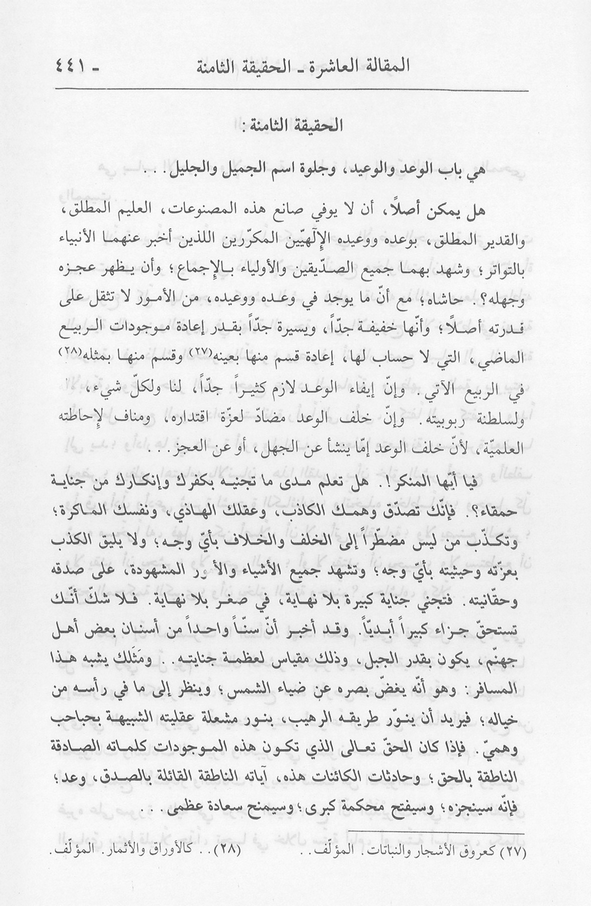 المقالة العاشرة ـ الحقيقة الثامنة ـ ٤٤١
الحقيقة الثامنة :
هي باب الوعد والوعيد، وجلوة اسم الجميل والجليل . . .
هل يمكن أصلًا، أن لا يوفي صانع هذه المصنوعات، العليم المطلق،
والقدير المطلق، بوعده ووعيده الإلٓهيّين المكرّرين اللذين أخبر عنهما الأنبياء
بالتواتر؛ وشهد بهما جميع الصدّيقين والأولياء بالإجماع؛ وأن يظهر عجزه
وجهله؟. حاشاه؛ مع أنّ ما يوجد في وعده ووعيده، من الأمور لا تثقل على
قدرته أصلًا؛ وأنّها خفيفة جدّاً، ويسيرة جدّاً بقدر إعادة موجودات الربيع
الماضي، التي لا حساب لها، إعادة قسم منها بعينه(٢٧) وقسم منها بمثله(٢٨)
في الربيع الآتي. وإنّ إيفاء الوعد لازم كثيراً جدّاً، لنا ولكلّ شيء،
ولسلطنة ربوبيته. وإنّ خلف الوعد مضادّ لعزّة اقتداره، ومناف لإحاطته
العلميّة، لأنّ خلف الوعد إمّا ينشأ عن الجهل، أو عن العجز...
فيا أيّها المنكر!. هل تعلم مدى ما تجنيه بكفرك وإنكارك من جناية
حمقاء؟. فإنّك تصدّق وهمك الكاذب، وعقلك الهاذي، ونفسك الماكرة؛
وتكذّب من ليس مضطراً إلى الخلف والخلاف بأيّ وجه؛ ولا يليق الكذب
بعزّته وحيثيته بأيّ وجه؛ وتشهد جميع الأشياء والأمور المشهودة، على صدقه
وحقّانيته. فتجني جناية كبيرة بلا نهاية، في صغر بلا نهاية. فلا شكّ أنّك
تستحقّ جزاء كبيراً أبديّاً. وقد أخبر أنّ سنّاً واحداً من أسنان بعض أهل
جهنّم، يكون بقدر الجبل، وذلك مقياس لعظمة جنايته.. ومَثَلك يشبه هذا
المسافر: وهو أنّه يغضّ بصره عن ضياء الشمس؛ وينظر إلى ما في رأسه من
خياله؛ فيريد أن ينوّر طريقه الرهيب، بنور مشعلة عقليته الشبيهة بحباحب
وهميّ. فإذا كان الحقّ تعالى الذي تكون هذه الموجودات كلماته الصادقة
الناطقة بالحق؛ وحادثات الكائنات هذه، آياته الناطقة القائلة بالصدق، وعد؛
فإنّه سينجزه؛ وسيفتح محكمة كبرى؛ وسيمنح سعادة عظمى...
(٢٧) كعروق الأشجار والنباتات. المؤلّف.. (٢٨).. كالأوراق والأثمار. المؤلّف.